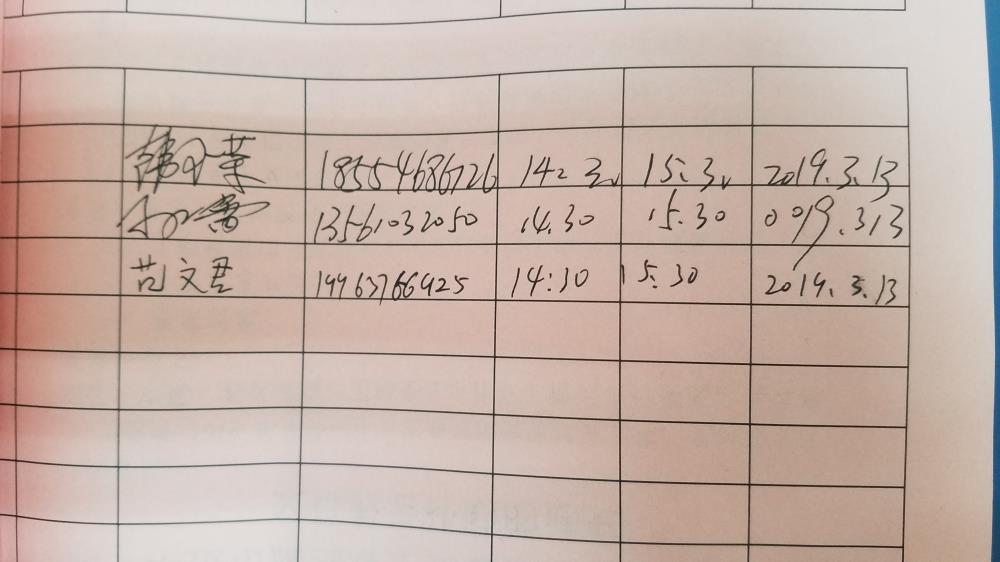 18554686726 14:30 15:30 2019.3.13
13561032050 14.30 15.30 019.313
范文君 19963766925 14:30 15:30 2019.3.13